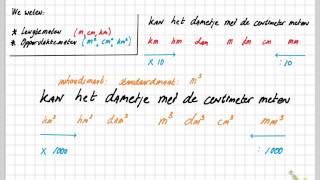 We weten:
* Lengtematen (m, cm, km)
* Oppervlaktematen (m², cm², km²)
kan het dametje met de centimeter meten
km hm dam m dm cm mm
x 10 : 10
inhoudsmaat: standaardmaat: m³
kan het dametje met de centimeter meten
km³ hm³ dam³ m³ dm³ cm³ mm³
x 1000 : 1000